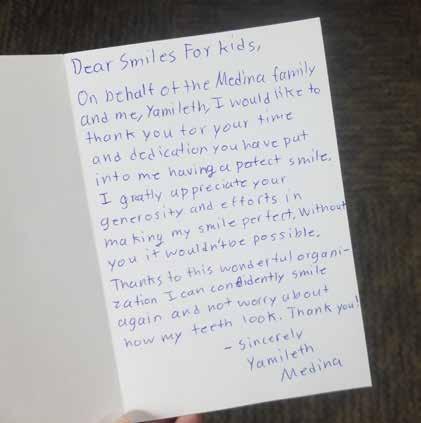 Dear Smiles For kids,
On behalf of the Medina family
and me, Yamileth, I would like to
thank you for your time
and dedication you have put
into me having a pefect smile.
I gratly appreciate your
generosity and efforts in
making my smile perfect, Without
you it wouldn't be possible.
Thanks to this wonderful organi-
zation I can confidently smile
again and not worry about
how my teeth look. Thank you!
- Sincerely
Yamileth
Medina